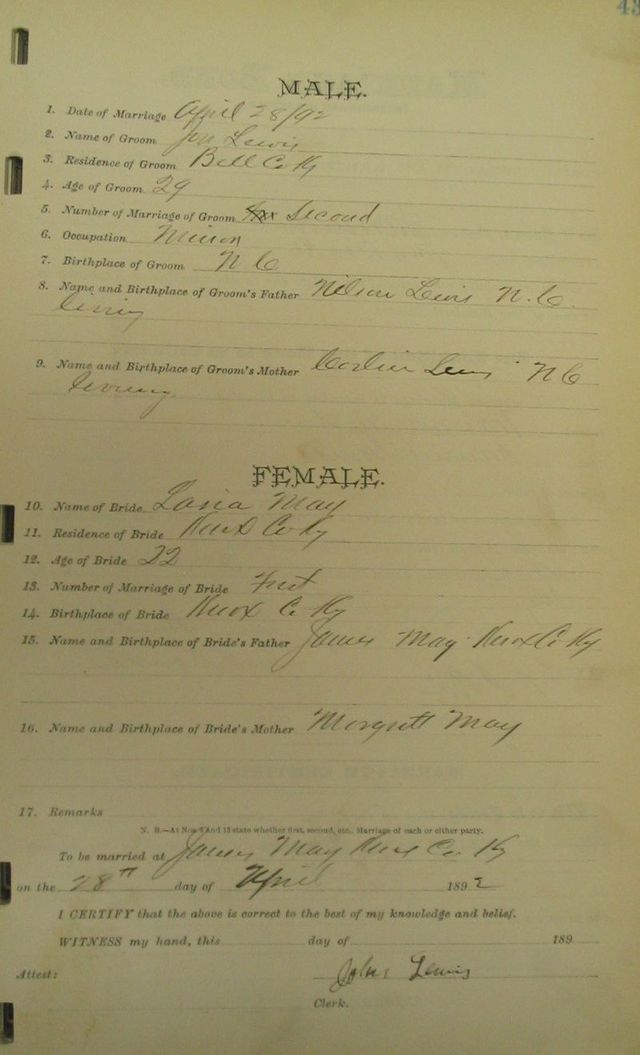 43
MALE.
1. Date of Marriage April 28/92
2. Name of Groom Jon Lewis
3. Residence of Groom Bell Co Ky
4. Age of Groom 29
5. Number of Marriage of Groom Second
6. Occupation
7. Birthplace of Groom N C
8. Name and Birthplace of Groom's Father Nelson Lewis N. C.
living
9. Name and Birthplace of Groom's Mother Lewis N C
living
FEMALE.
10. Name of Bride May
11. Residence of Bride Knox Co Ky
12. Age of Bride 22
13. Number of Marriage of Bride First
14. Birthplace of Bride Knox Co Ky
15. Name and Birthplace of Bride's Father James May Knox Co Ky
16. Name and Birthplace of Bride's Mother Morgrett May
17. Remarks
N. B.—At Nos. 5 and 13 state whether first, second, etc. Marriage of each or either party.
To be married at James May Knox Co Ky
on the 28th day of April 1892
I CERTIFY that the above is correct to the best of my knowledge and belief.
WITNESS my hand, this day of 189
Attest: John Lewis
Clerk.